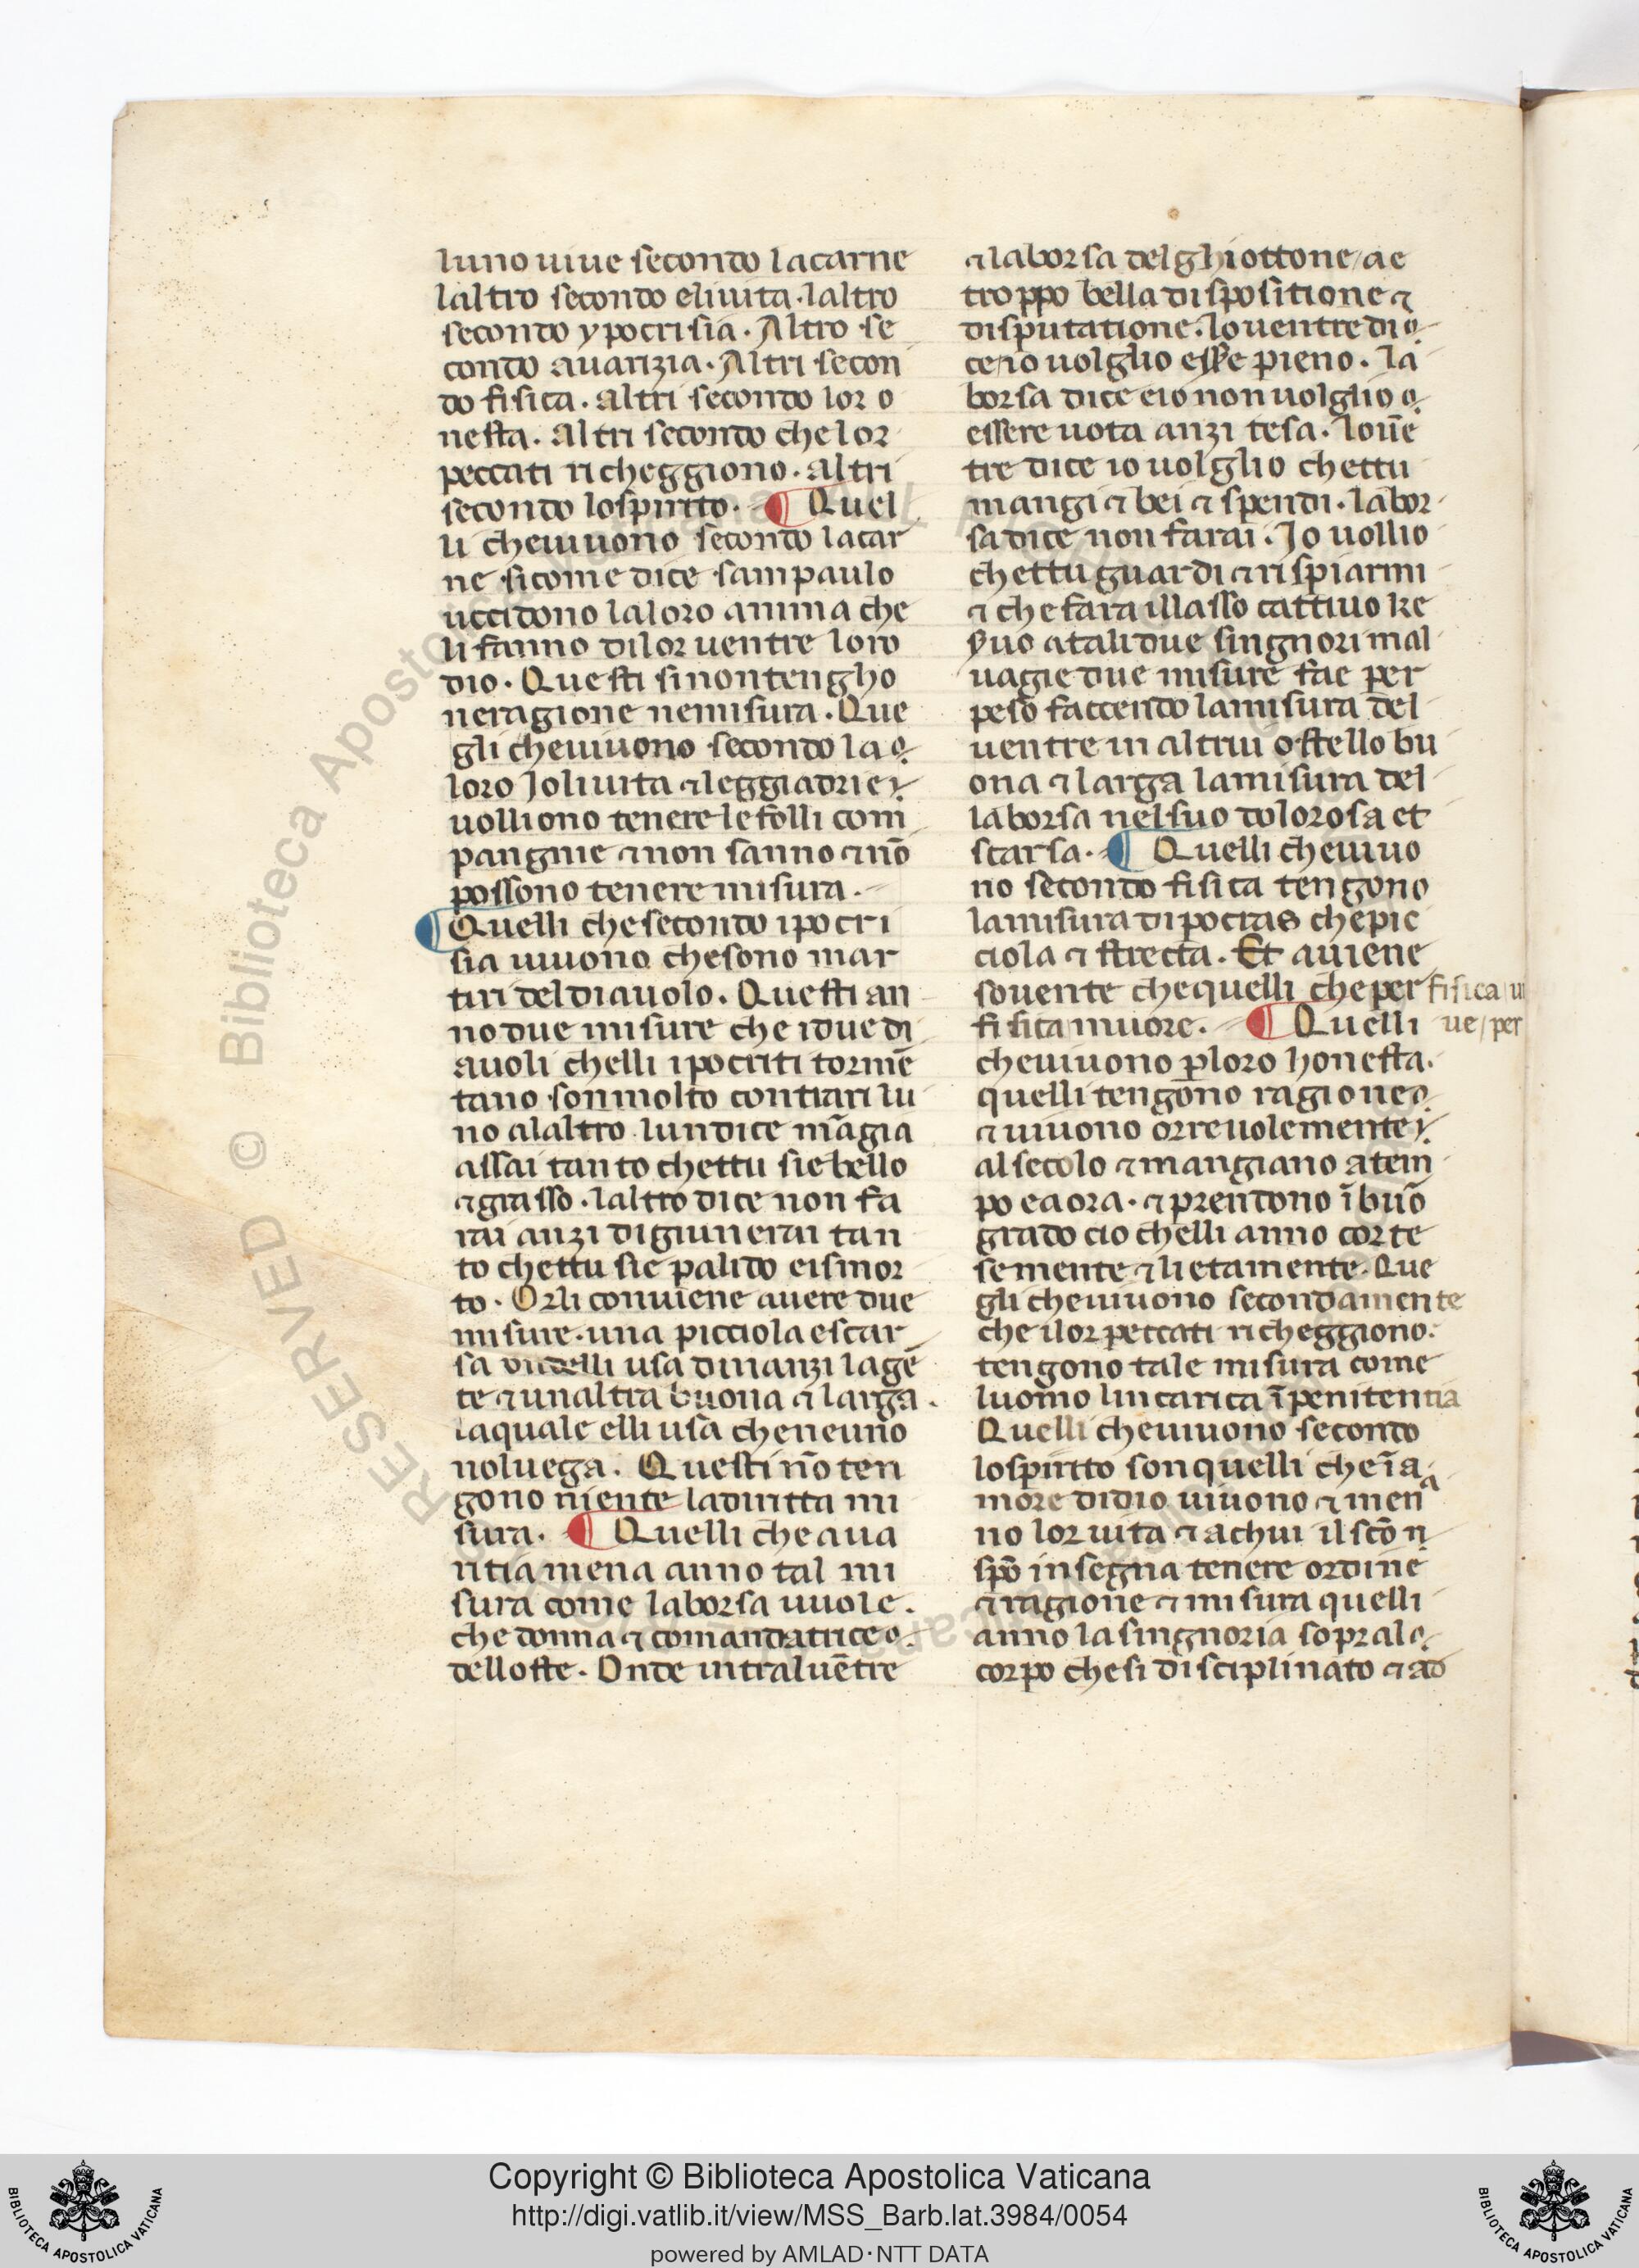 luno uiue secondo lacarne
laltro secondo eliuita · laltro
secondo ypocrisia · Altro se
condo auarizia · Altri secon
do fisica · altri secondo lor o
nesta · Altri secondo che lor
peccati richeggiono · altri
secondo lospirito · ¶ Quel
li cheuiuono secondo lacar
ne sicome dice sampaulo
uccidono laloro anima che
li fanno dilor uentre loro
dio · Questi sinontengho
neragione nemisura · Que
gli cheuiuono secondo la
loro Joliuita ⁊leggiadrie
uolliono tenere lefolli com
pangnie ⁊non sanno ⁊nō
possono tenere misura ·
¶ Quelli chesecondo ipocri
sia uiuono chesono mar
tiri deldiauolo · Questi an
no due misure che idue di
auoli chelli ipocriti tormē
tano sonmolto contrari lu
no alaltro lundice māgia
assai tanto chettu sie bello
⁊grasso · laltro dice non fa
rai anzi digiunerai tan
to chettu sie palido eismor
to · Orli conuiene auere due
misure · una picciola escar
sa usa dinanzi lagē
te ⁊unaltra buona ⁊ larga ·
laquale elli usa cheneuno
noluega · Questi nō ten
gono niente ladiritta mi
sura · ¶ Quelli che aua
ritia mena anno tal mi
sura come laborsa uuole ·
che donna ⁊ comandatrice
delloste · Onde intraluētre
⁊laborsa delghiottone / ae
troppo bella dispositione ⁊
disputatione · louentre di
ce io uolglio essere pieno · la
borsa dice eio nonuolglio
essere uota anzi tesa · louē
tre dice io uolglio chettu
mangi ⁊ bei ⁊ spendi · labor
sa dice non farai · Jo uollio
chettu guardi ⁊rispiarmi
⁊ che fara illasso cattiuo ke
suo atalidue singnori mal
uagie due misure fae per
peso faccendo lamisura del
uentre in altrui ostello bu
ona ⁊ larga lamisura del
laborsa nelsuo dolorosa et
scarsa · ¶ Quelli cheuiuo
no secondo fisica tengono
lamisura dipocras chepic
ciola ⁊ strecta · Et auiene
souente chequelli cheper fisica ui
fisica muore · ¶ Quelli ue / per
cheuiuono ꝑloro honesta ·
quelli tengono ragione
⁊ uiuono orreuolemente
alsecolo ⁊ mangiano atem
po eaora · ⁊ prendono ī buō
grado cio chelli anno corte
semente ⁊ lietamente · Que
gli cheuiuono secondamente
che ilor peccati richeggiono ·
tengono tale misura come
luomo lincarica ī penitentia
Quelli cheuiuono secondo
lospirito sonquelli che ī a
more didio uiuono ⁊ men a
no lor uita ⁊ achui il scō
spō insegna tenere ordine
⁊ragione ⁊ misura quelli
anno lasingnoria sopral
corpo chesi disciplinato ⁊ ad
RESERVED © Biblioteca Apostolica Vaticana
Copyright © Biblioteca Apostolica Vaticana
http://digi.vatlib.it/view/MSS_Barb.lat.3984/0054
powered by AMLAD·NTT DATA
BIBLIOTECA APOSTOLICA VATICANA
BIBLIOTECA APOSTOLICA VATICANA